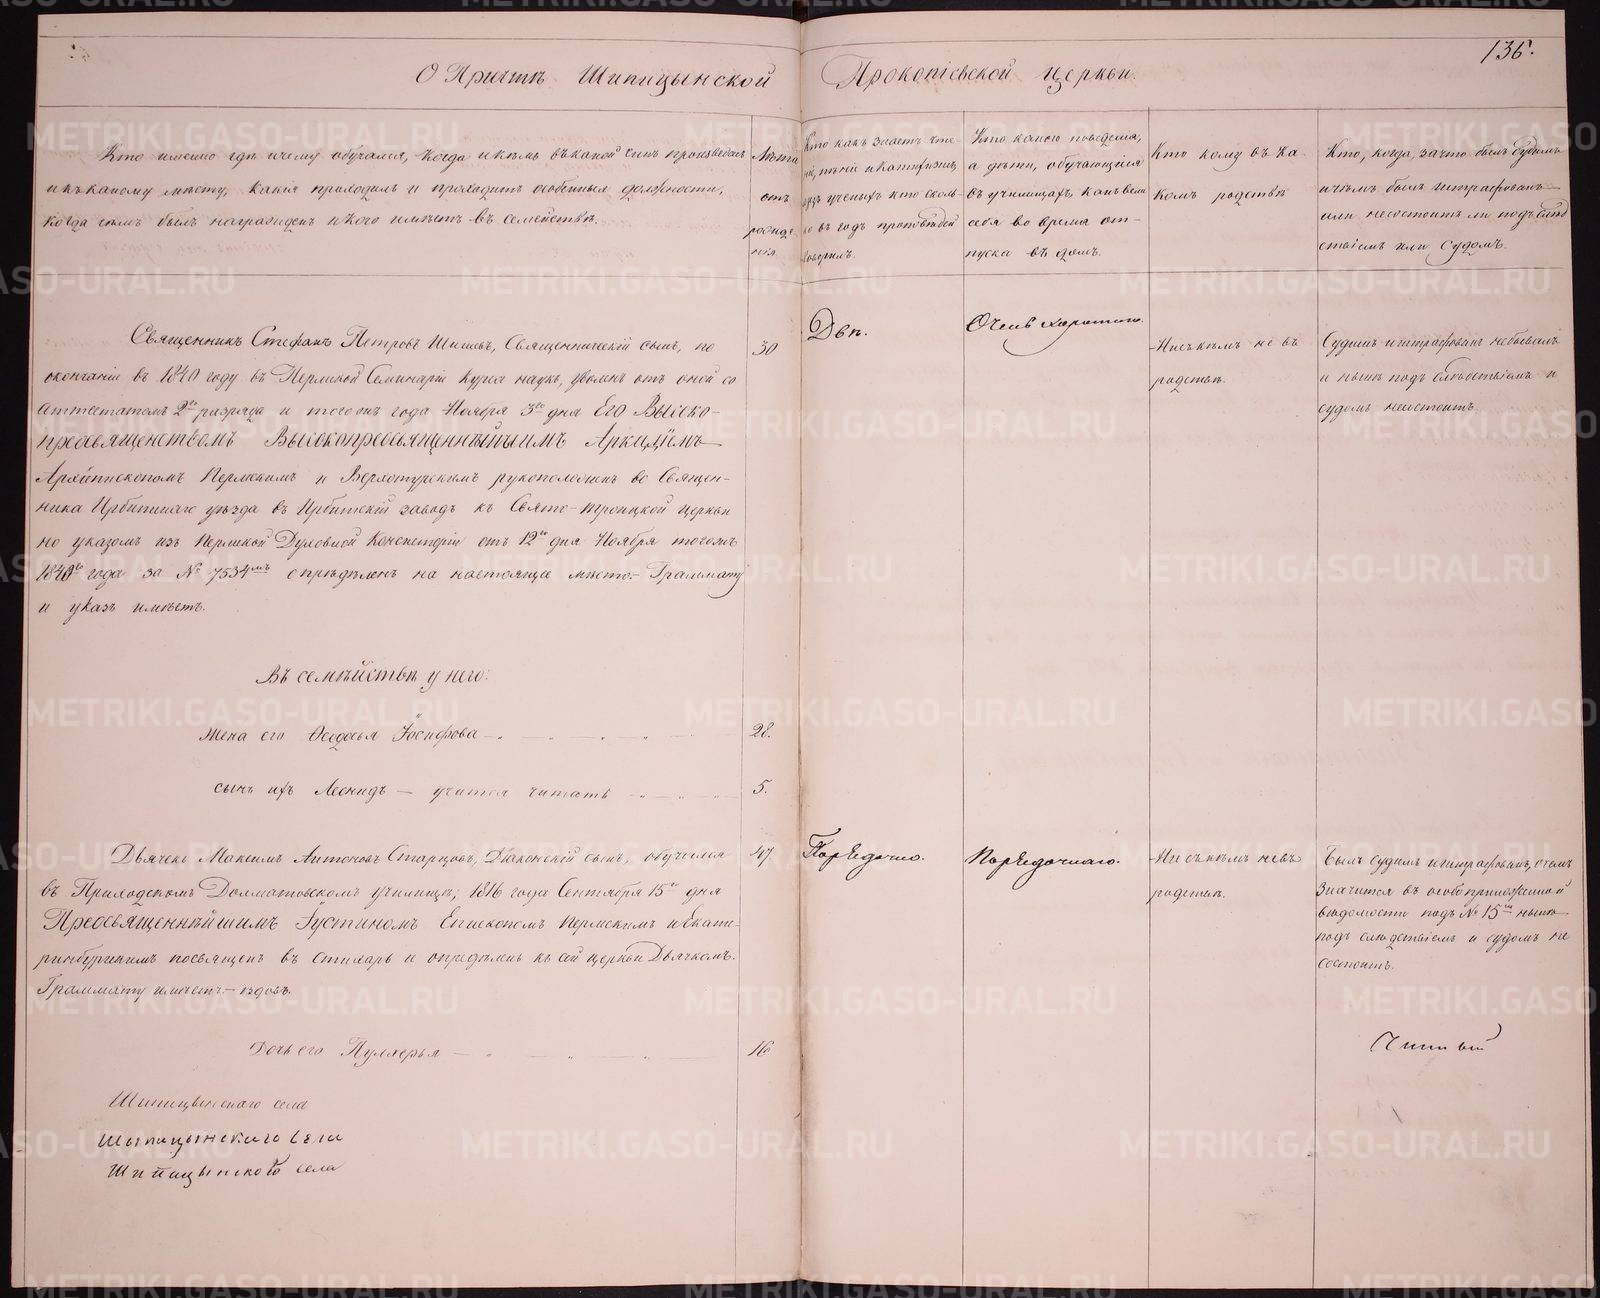 136.
О Причтѣ Шипицынской Прокопіевской церкви.
Кто именно гдѣ и чему обучался, когда и кѣмъ въ какой чинъ произведенъ
и къ какому мѣсту, какія проходилъ и проходитъ особенныя должности,
когда чѣмъ былъ награжденъ и кого имѣетъ въ семействѣ.
Лѣта
отъ
рожде
нія
Кто какъ знаетъ чте-
ніе, пѣніе и катихизисъ,
изъ ученыхъ кто сколь-
ко въ годъ проповѣдей
говорилъ.
Кто какого поведенія,
а дѣти, обучающіяся
въ училищахъ, какъ вели
себя во время от-
пуска въ домъ.
Кто кому въ ка
комъ родствѣ
Кто, когда, за что былъ судимъ
и чѣмъ былъ штрафованъ
или не состоитъ ли подъ слѣд
ствіемъ или судомъ.
Священникъ Стефанъ Петровъ Священническій сынъ, по
окончаніи въ 1840 году въ Пермской Семинаріи курса наукъ, уволенъ отъ оной со
аттестатомъ 2го разряда и того жъ года Ноября 3го дня Его Высоко-
преосвященствомъ Высокопреосвященнѣйшимъ Аркадіемъ
Архіепископомъ Пермскимъ и Верхотурскимъ рукоположенъ во Священ-
ника Ирбитскаго уѣзда въ Ирбитскій заводъ къ Свято-Троицкой церкви
но указомъ изъ Пермской Духовной Консисторіи отъ 12го дня Ноября того жъ
1840го года за № 7534мъ опредѣленъ на настоящее мѣсто. Граммату
и указъ имѣетъ.
30
Двѣ.
Очень хорошаго.
Ни съ кѣмъ не въ
родствѣ.
Судимъ и штрафованъ не бывалъ
и нынѣ подъ слѣдствіемъ и
судомъ не состоитъ.
Въ семействѣ у него:
Жена его Ѳедосья Іосифова 28.
сынъ ихъ Леонидъ — учится читать 5.
Дьячекъ Максимъ Антоновъ Старцовъ, Діаконскій сынъ, обучался
въ Приходскомъ Долматовскомъ училищѣ, 1816 года Сентября 15го дня
Преосвященнѣйшимъ Іустиномъ Епископомъ Пермскимъ и Екате-
ринбургскимъ посвященъ въ стихарь и опредѣленъ къ сей церкви Дьячкомъ.
Граммату имѣетъ — вдовъ.
47
Порядочно.
Порядочнаго.
Ни съ кѣмъ не въ
родствѣ.
Былъ судимъ и штрафованъ, о чемъ
значится въ особо приложенной
вѣдомости подъ № 15мъ нынѣ
подъ слѣдствіемъ и судомъ не
состоитъ.
Дочь его Пулхерья 16
Шипицынскаго села
Шипицынскаго села
Шипицынского села
METRIKI.GASO-URAL.RU